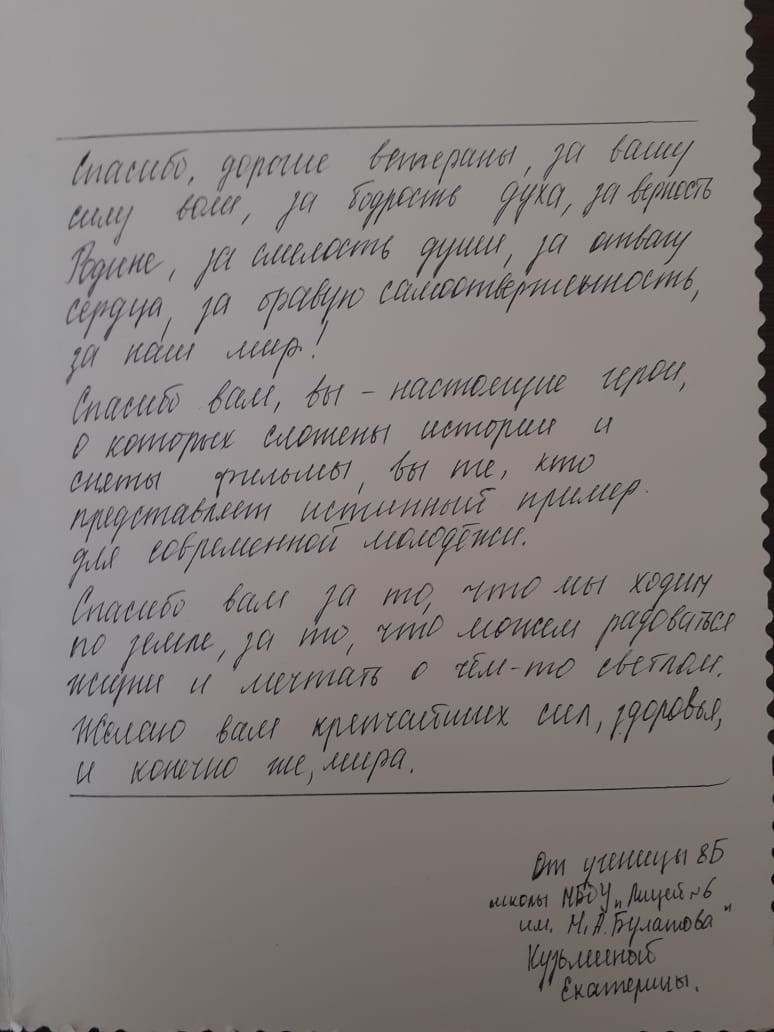 Спасибо, дорогие ветераны, за вашу
силу воли, за бодрость духа, за верность
Родине, за смелость души, за отвагу
сердца, за бравую самоотверженность,
за наш мир!
Спасибо вам, вы - настоящие герои,
о которых сложены истории и
сняты фильмы, вы те, кто
представляет истинный пример
для современной молодёжи.
Спасибо вам за то, что мы ходим
по земле, за то, что можем радоваться
жизни и мечтать о чём-то светлом.
Желаю вам крепчайших сил, здоровья,
и конечно же, мира.
От ученицы 8Б
школы МБОУ "Лицей №6
им. М.А. Булатова"
Кузьминой
Екатерины.